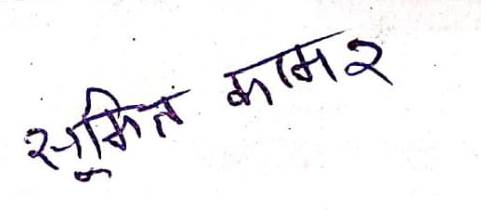 सुमित कामर